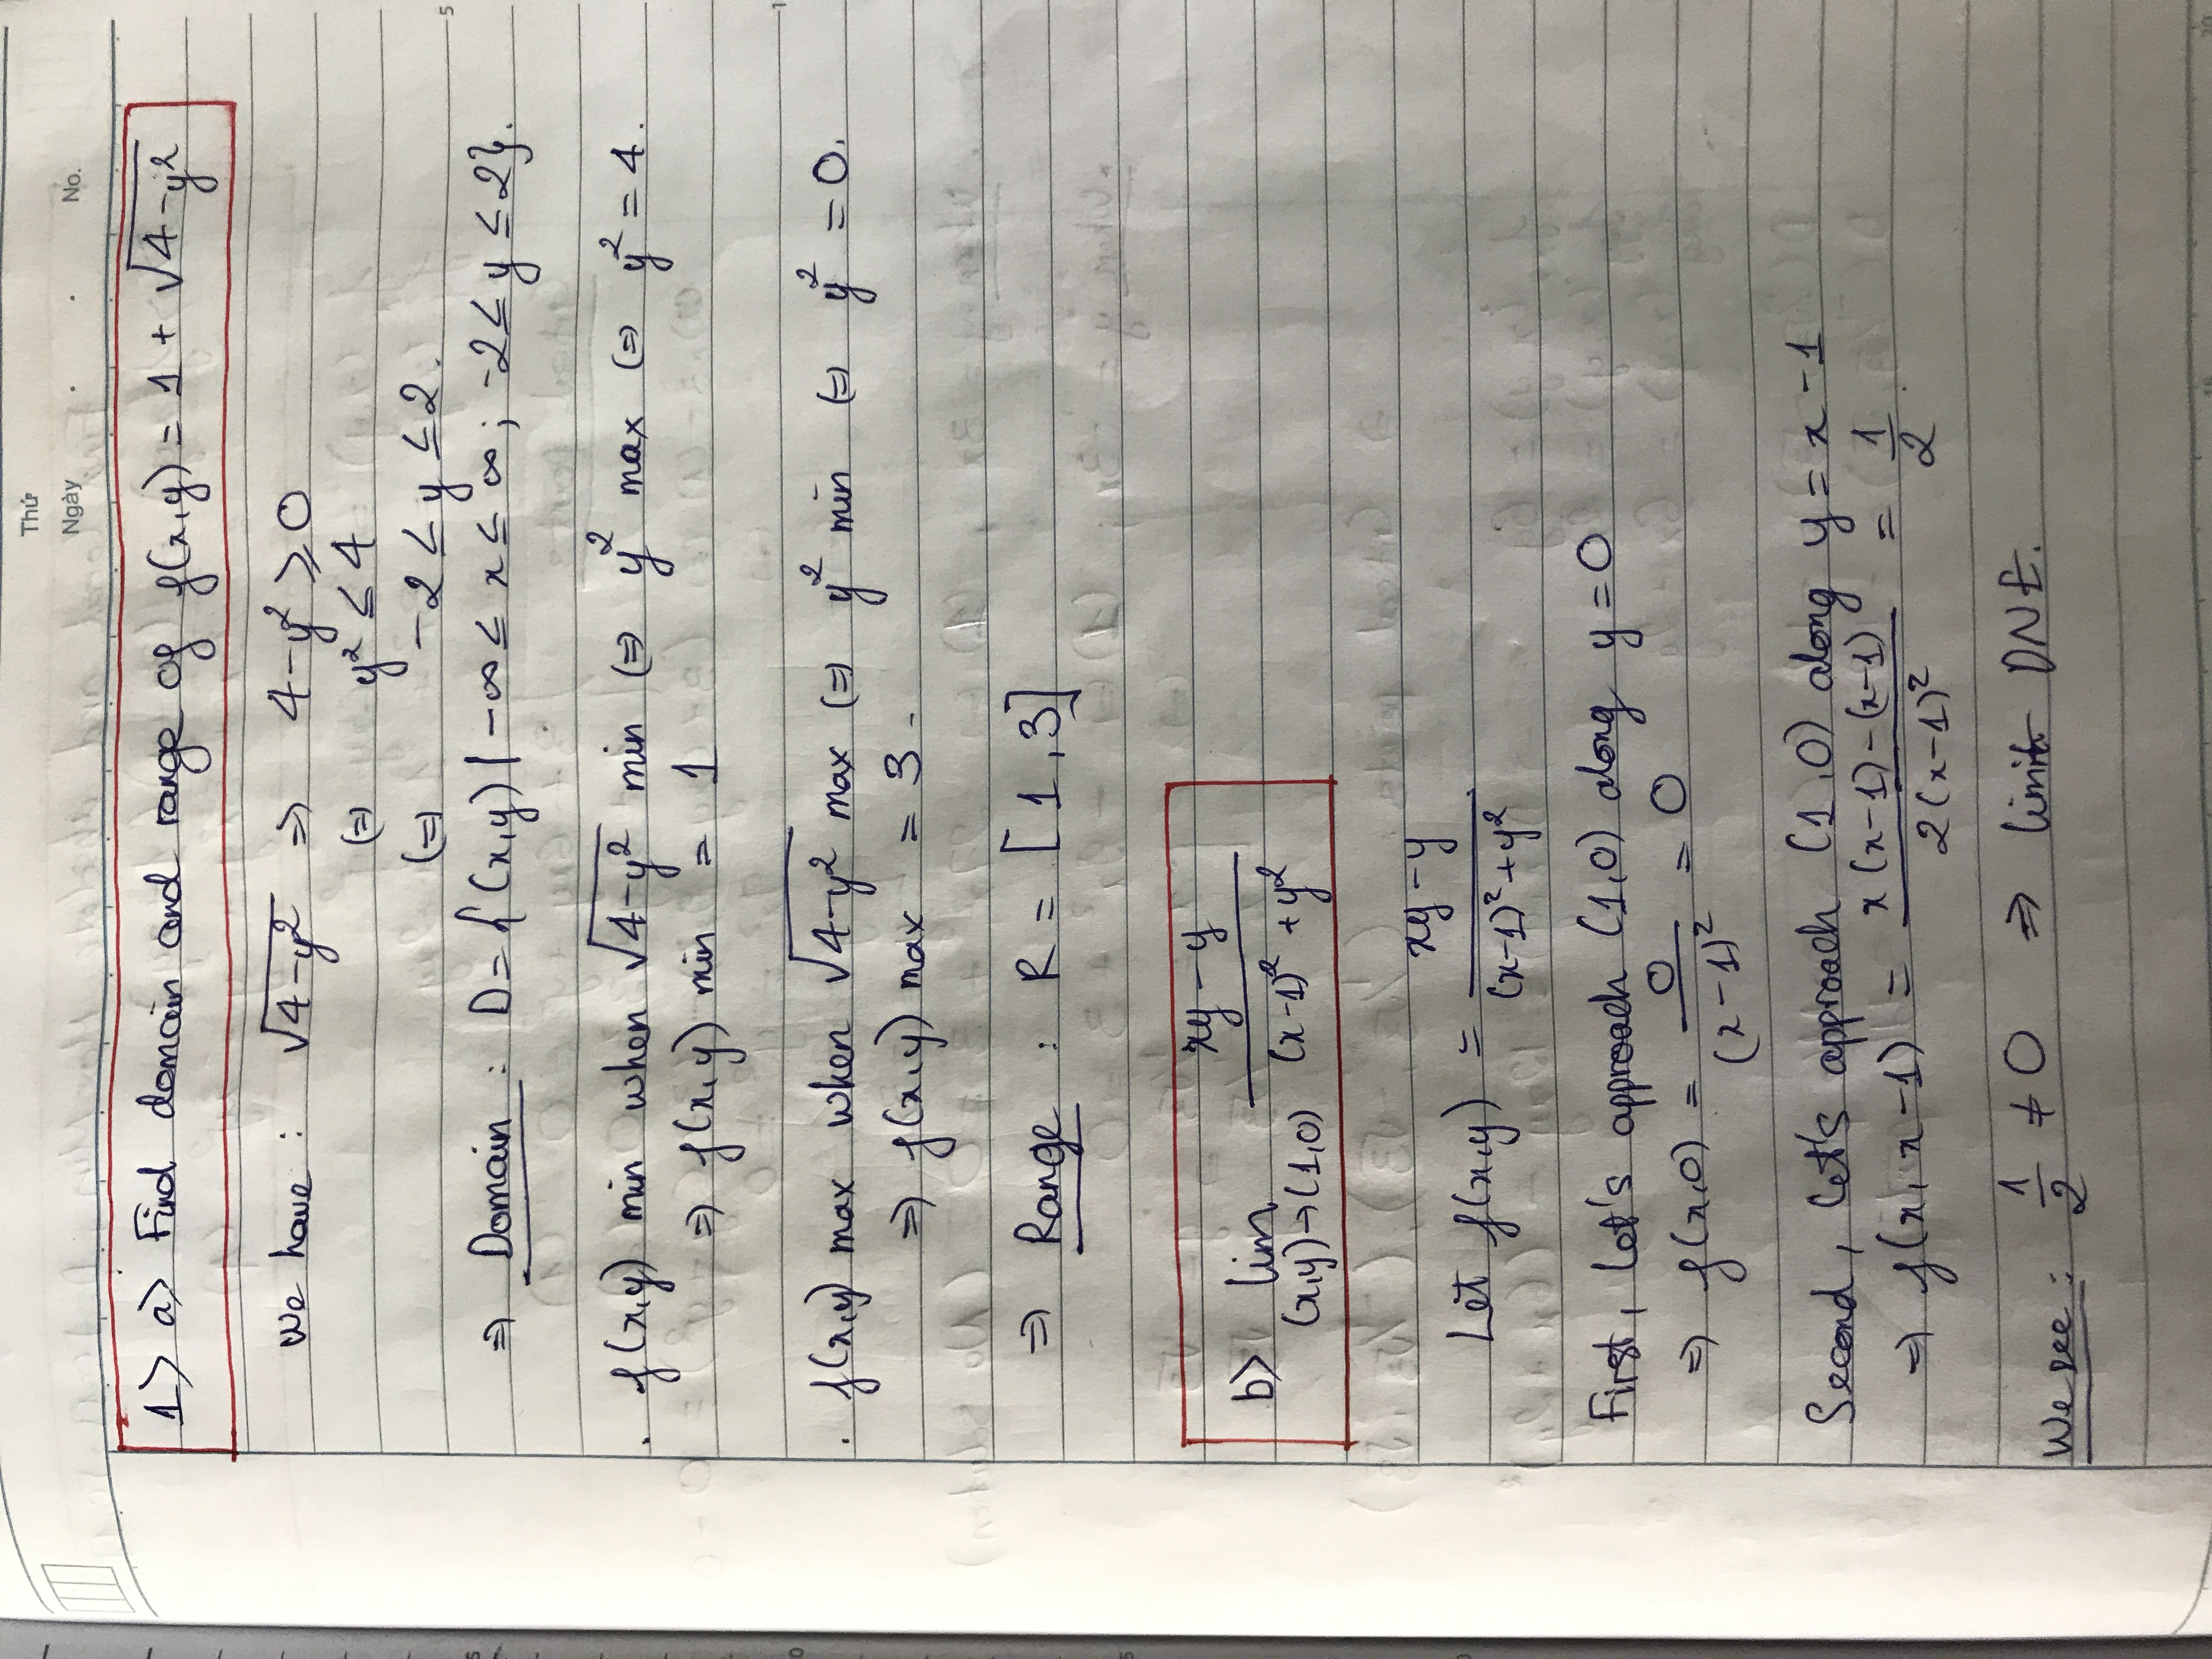 Thứ
Ngày . . No.
1> a> Find domain and range of f(x,y) = 1 + √(4-y²)
We have : √(4-y²) => 4-y² ⩾ 0
(=) y² ≤ 4
(=) -2 ≤ y ≤ 2.
=> Domain : D = {(x,y) | -∞ ≤ x ≤ ∞ ; -2 ≤ y ≤ 2}.
. f(x,y) min when √(4-y²) min (=) y² max (=) y² = 4.
=> f(x,y) min = 1
. f(x,y) max when √(4-y²) max (=) y² min (=) y² = 0.
=> f(x,y) max = 3 -
=> Range : R = [1,3]
b> lim (x,y)→(1,0) (xy-y)/((x-1)²+y²)
Let f(x,y) = (xy-y)/((x-1)²+y²)
First, let's approach (1,0) along y = 0
=> f(x,0) = 0/(x-1)² = 0
Second, let's approach (1,0) along y = x-1
=> f(x, x-1) = (x(x-1)-(x-1))/(2(x-1)²) = 1/2.
We see : 1/2 ≠ 0 => limit DNE.
5
1
5
0
5
15
20